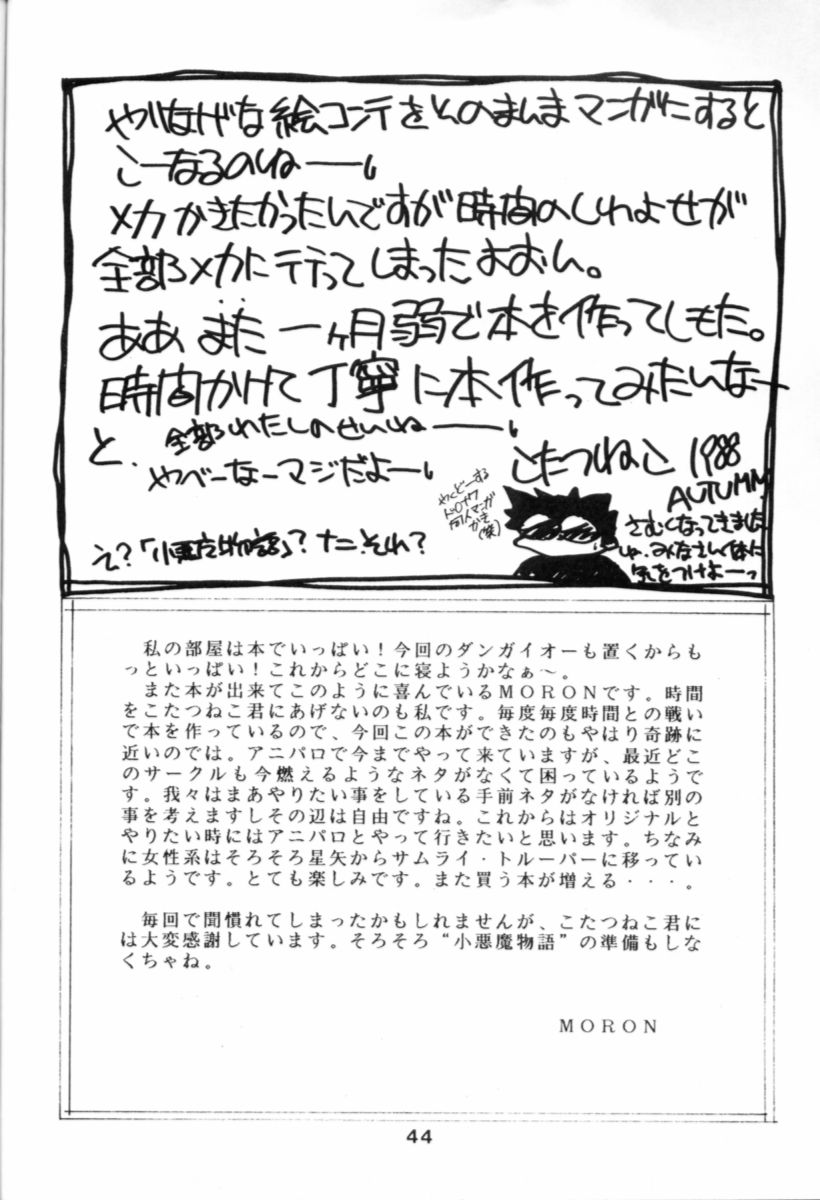 やりなげな絵コンテをそのまんまマンガにすると
こーなるのねーー
メカかきたかったんですが時間のしわよせが
全部メカに行ってしまったよおん。
ああ また 一ヶ月弱で本を作ってしもた。
時間かけて丁寧に本作ってみたいなー
と. 全部わたしのせいねーー
やべーなーマジだよー
え?「小悪魔物語」? ナニそれ?
こたつねこ 1988
AUTUMN
さむくなってきました
みなさん体に
気をつけよーっ
同人マンガ
かき
(笑)
私の部屋は本でいっぱい!今回のダンガイオーも置くからも
っといっぱい!これからどこに寝ようかなぁ～。
また本が出来てこのように喜んでいるMORONです。時間
をこたつねこ君にあげないのも私です。毎度毎度時間との戦い
で本を作っているので、今回この本ができたのもやはり奇跡に
近いのでは。アニパロで今までやって来ていますが、最近どこ
のサークルも今燃えるようなネタがなくて困っているようで
す。我々はまあやりたい事をしている手前ネタがなければ別の
事を考えますしその辺は自由ですね。これからはオリジナルと
やりたい時にはアニパロとやって行きたいと思います。ちなみ
に女性系はそろそろ星矢からサムライ・トルーパーに移ってい
るようです。とても楽しみです。また買う本が増える・・・。
毎回で聞慣れてしまったかもしれませんが、こたつねこ君に
は大変感謝しています。そろそろ“小悪魔物語”の準備もしな
くちゃね。
MORON
44